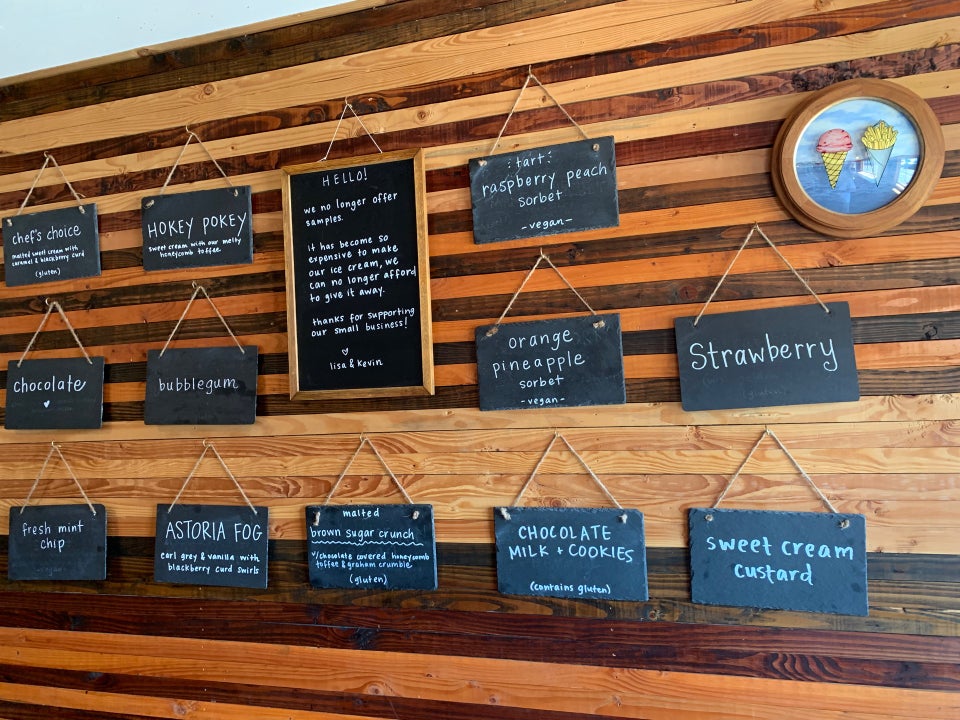 chef's choice
malted sweet cream with
caramel & blackberry curd
(gluten)
HOKEY POKEY
sweet cream with our melty
honeycomb toffee.
HELLO!
we no longer offer
samples.
it has become so
expensive to make
our ice cream, we
can no longer afford
to give it away.
thanks for supporting
our small business!
lisa & kevin
:tart:
raspberry peach
sorbet
-vegan-
chocolate
bubblegum
orange
pineapple
sorbet
-vegan-
Strawberry
fresh mint
chip
ASTORIA FOG
earl grey & vanilla with
blackberry curd swirls
malted
brown sugar crunch
w/chocolate covered honeycomb
toffee & graham crumble
(gluten)
CHOCOLATE
MILK + COOKIES
(contains gluten)
sweet cream
custard